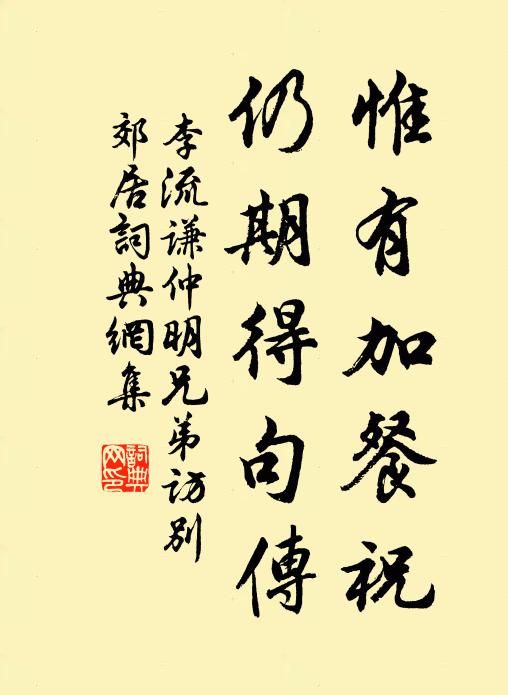 惟有加餐祝
仍期得句傳
李流谦仲明兄弟访别
郊居詞典網集
詞典网印